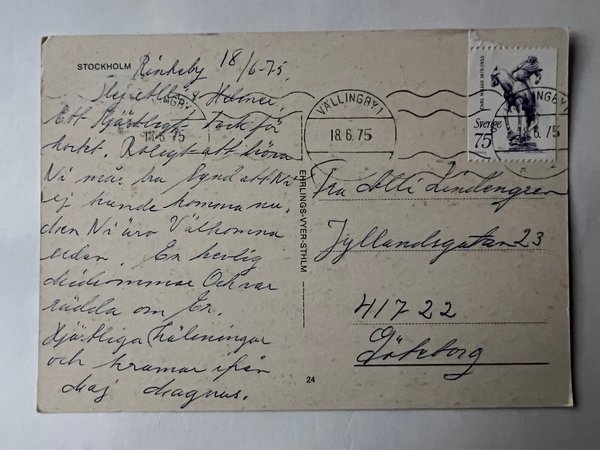 STOCKHOLM
Rinkeby 18/6-75.
Hej Helmer.
Ett Hjärtligt tack för
kortet. Roligt att höra
Ni mår bra Synd att Ni
ej kunde komma nu,
men Ni äro Välkomna
sedan. En herlig
midsommar Och var
rädda om Er.
Hjärtliga hälsningar
och kramar ifrån
Maj Magnus.
EHRLINGS-VYER-STHLM
24
VÄLLINGBY 1
18.6.75
INGBY
18.6.75
INGBY 1
6.75
Sverige
75
Fra Otti Lindengren
Jyllandsgatan 23
417 22
Göteborg